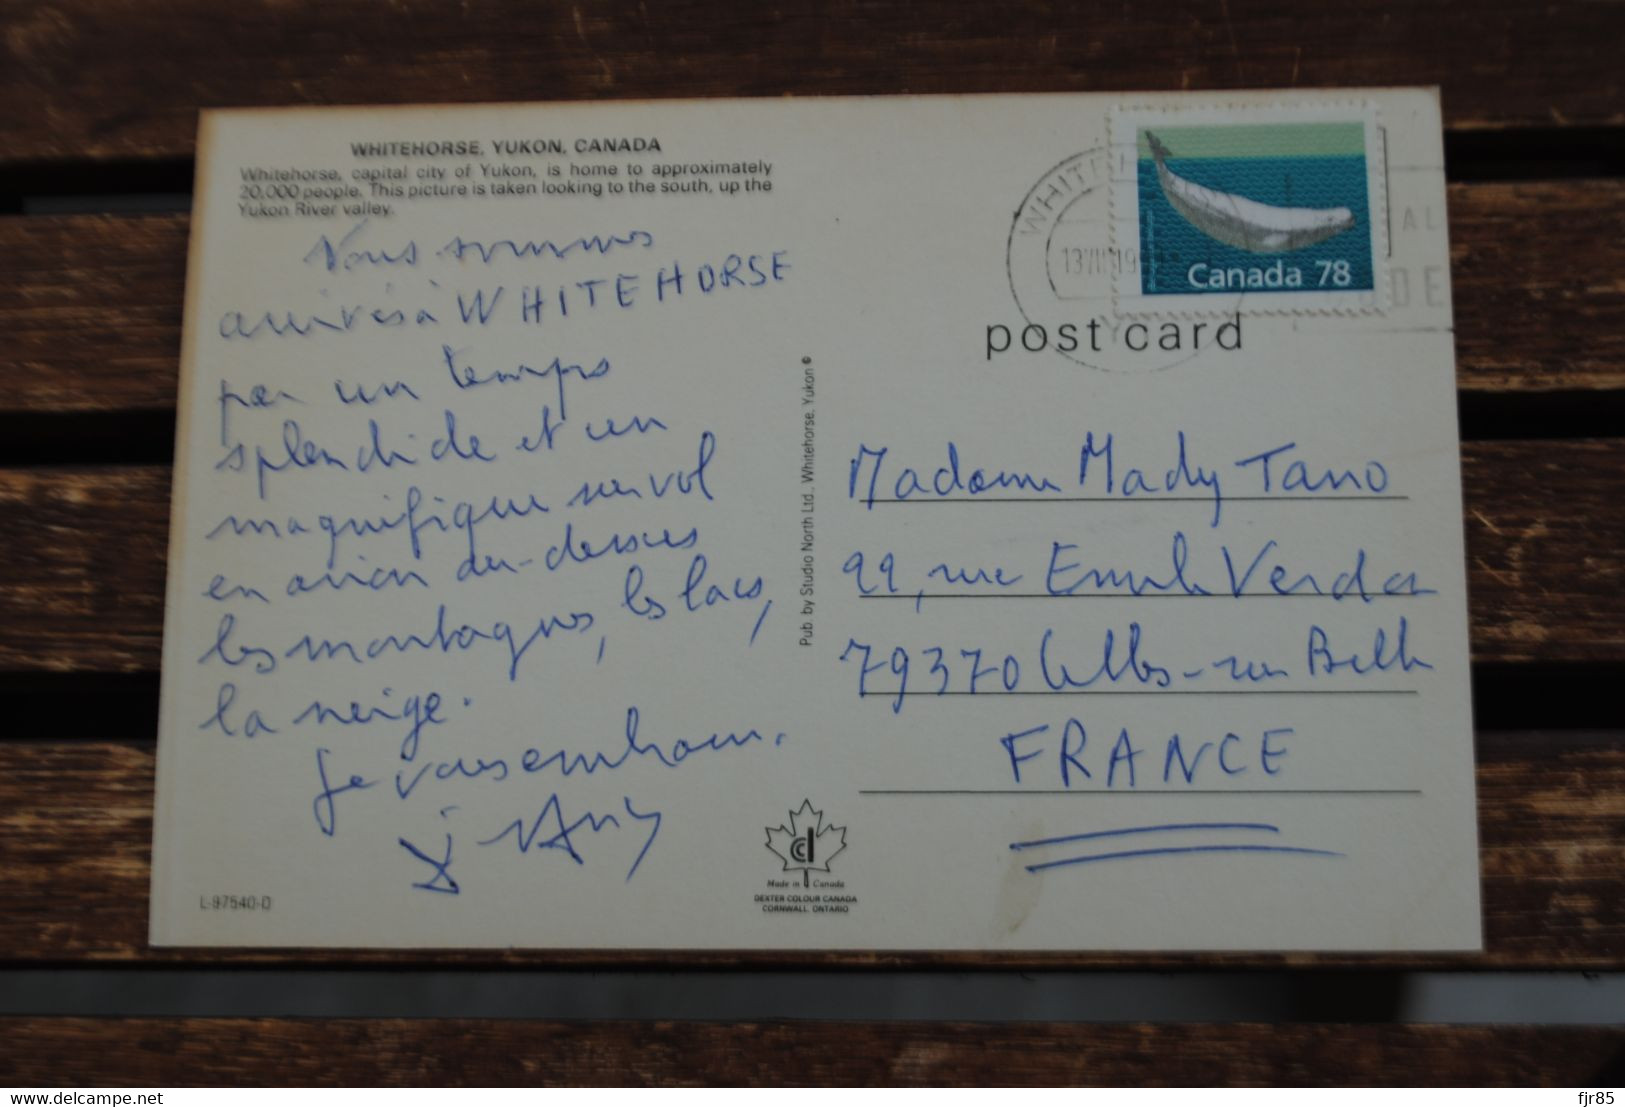 WHITEHORSE, YUKON, CANADA
Whitehorse, capital city of Yukon, is home to approximately
20,000 people. This picture is taken looking to the south, up the
Yukon River valley.
Nous sommes
arrivés à WHITEHORSE
par un temps
splendide et un
magnifique survol
en avion au-dessus
les montagnes, les lacs,
la neige.
Je vous embrasse.
L-97540-D
Pub. by Studio North Ltd., Whitehorse, Yukon ©
Made in Canada
DEXTER COLOUR CANADA
CORNWALL, ONTARIO
Canada 78
post card
Madame Mady Tano
22, rue Emile Verda
79370 Celles-sur Belle
FRANCE
www.delcampe.net
fjr85